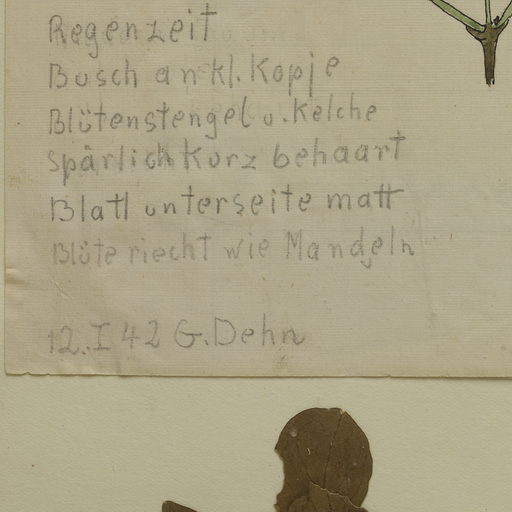 Regenzeit
Busch an kl. Kopje
Blütenstengel u. Kelche
Spärlich Kurz behaart
Blatt unterseite matt
Blüte riecht wie Mandeln
12.I 42 G. Dehn